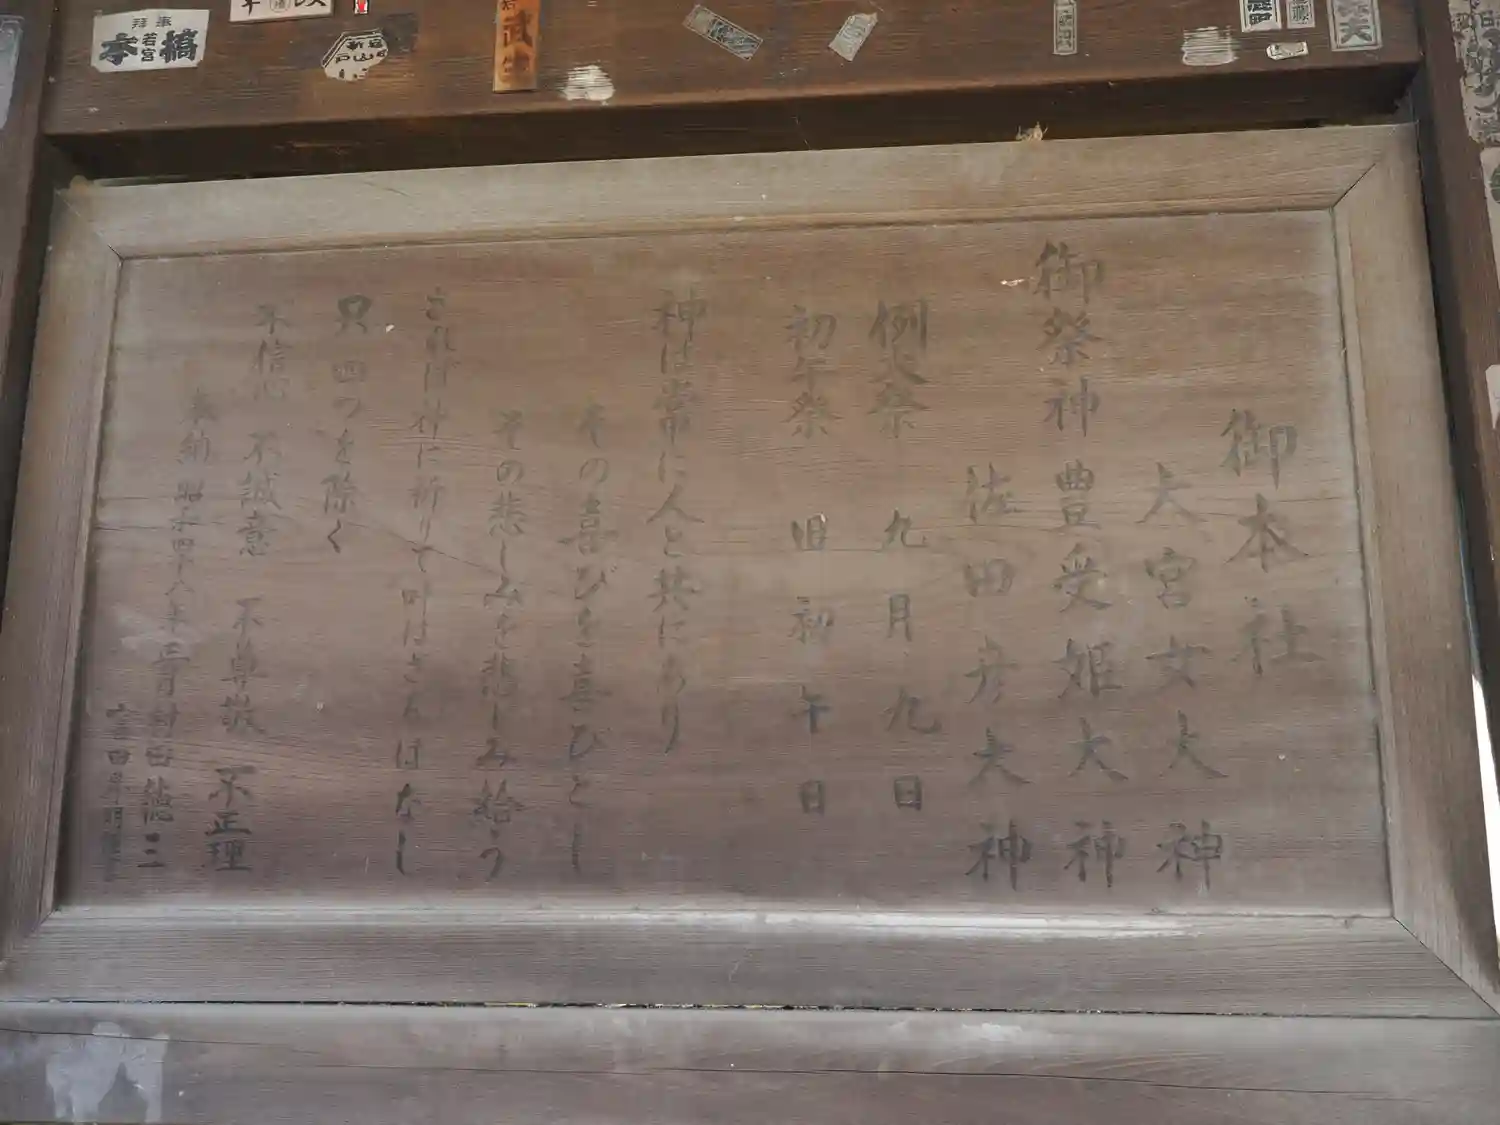 御本社
大宮女大神
御祭神 豊受姫大神
佐田彦大神
例大祭 九月九日
初午祭 旧初午日
神は常に人と共にあり
その喜びを喜びとし
その悲しみを悲しみ給う
されば神に祈りて叶はざるはなし
只四つを除く
不信心 不誠意 不尊敬 不正理
奉納 昭和四十八年 村田徳三
奉拝
若宮
本橋
武生